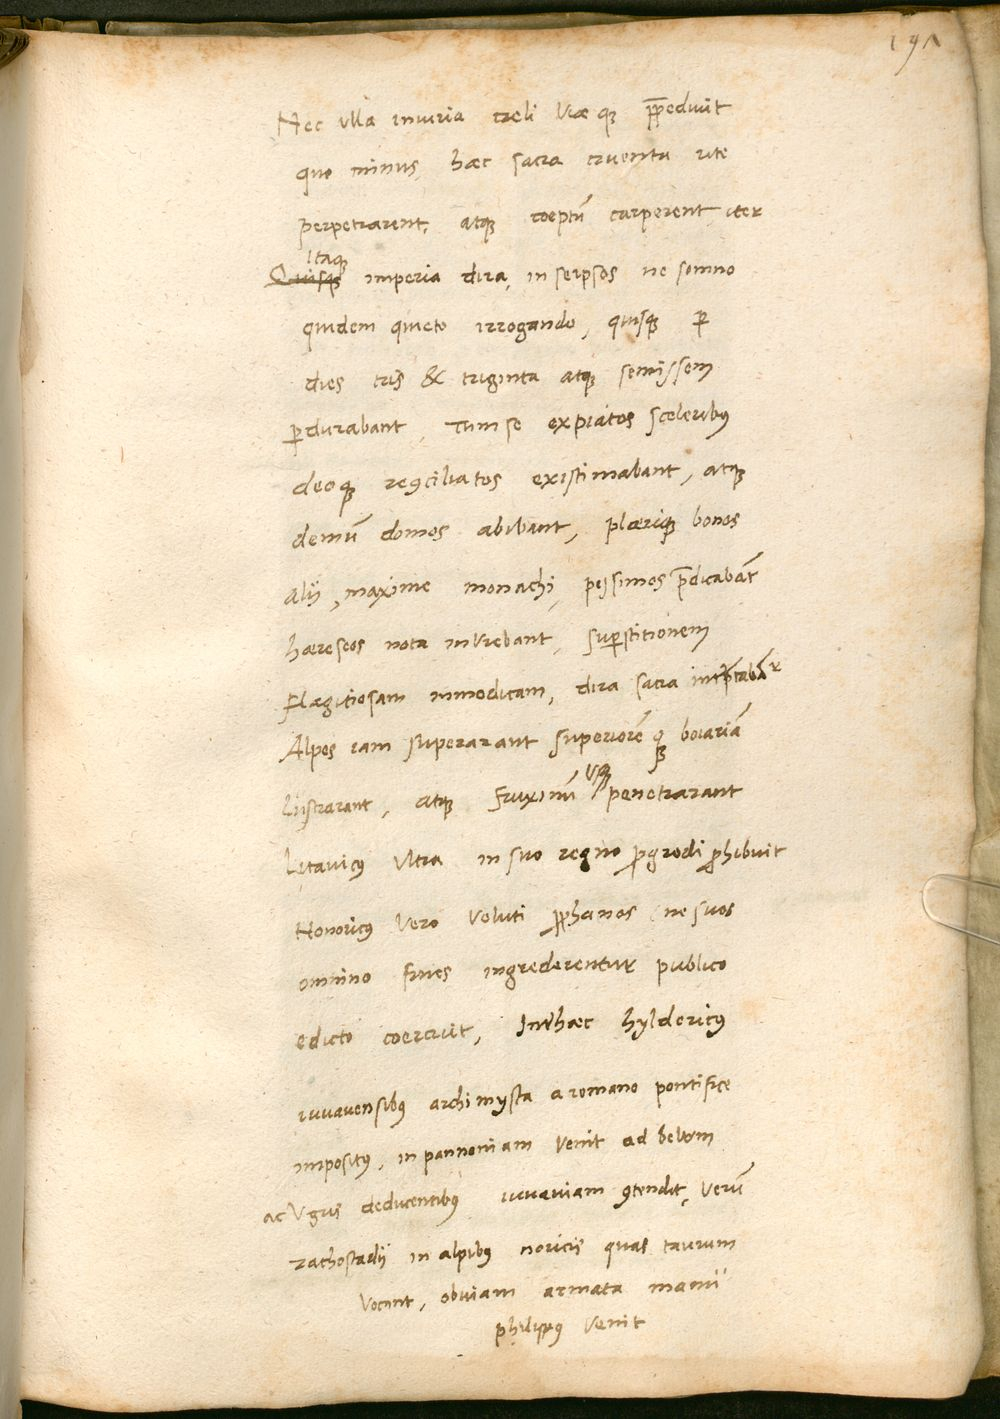 191
Nec ulla iniuria cæli viæ qꝫ p̄pedivit
quo minus, hæc sacra cruenta rite
perpetrarent, atqꝫ cœptū carperent iter
Itaqꝫ
Quisqꝫ imperia dira, in seipsos ne somno
quidem quieto irrogando, quisqꝫ ꝑ
dies tris & triginta atqꝫ semissem
ꝑdurabant, Tum se expiatos sceleribꝰ
deoqꝫ reꝯciliatos existimabant, atqꝫ
demū domos abibant, plæriqꝫ bonos
alij, maxime monachi, pessimos p̄dicabāt
hæreseos nota inurebant, suꝑstitionem
flagitiosam inmodicam, dira sacra
Alpes iam superarant superiorē qꝫ boiariā
Lustrarant, atqꝫ fruxinū usqꝫ penetrarant
Litavicꝰ ultra in suo regno ꝓgredi ꝓhibuit
Honoricꝰ vero veluti ꝓphanos ne suos
omnino fines ingrederentur publico
edicto coercuit, Inthæc hyldericꝰ
iuvavensibꝰ archimysta a romano pontifice
impositꝰ, in pannoniam venit ad belam
ac Vgris deducentibꝰ iuvaviam ꝯtendit, verū
rathostadij in alpibꝰ noricis quas taurum
vocant, obviam armata manu
philippꝰ venit